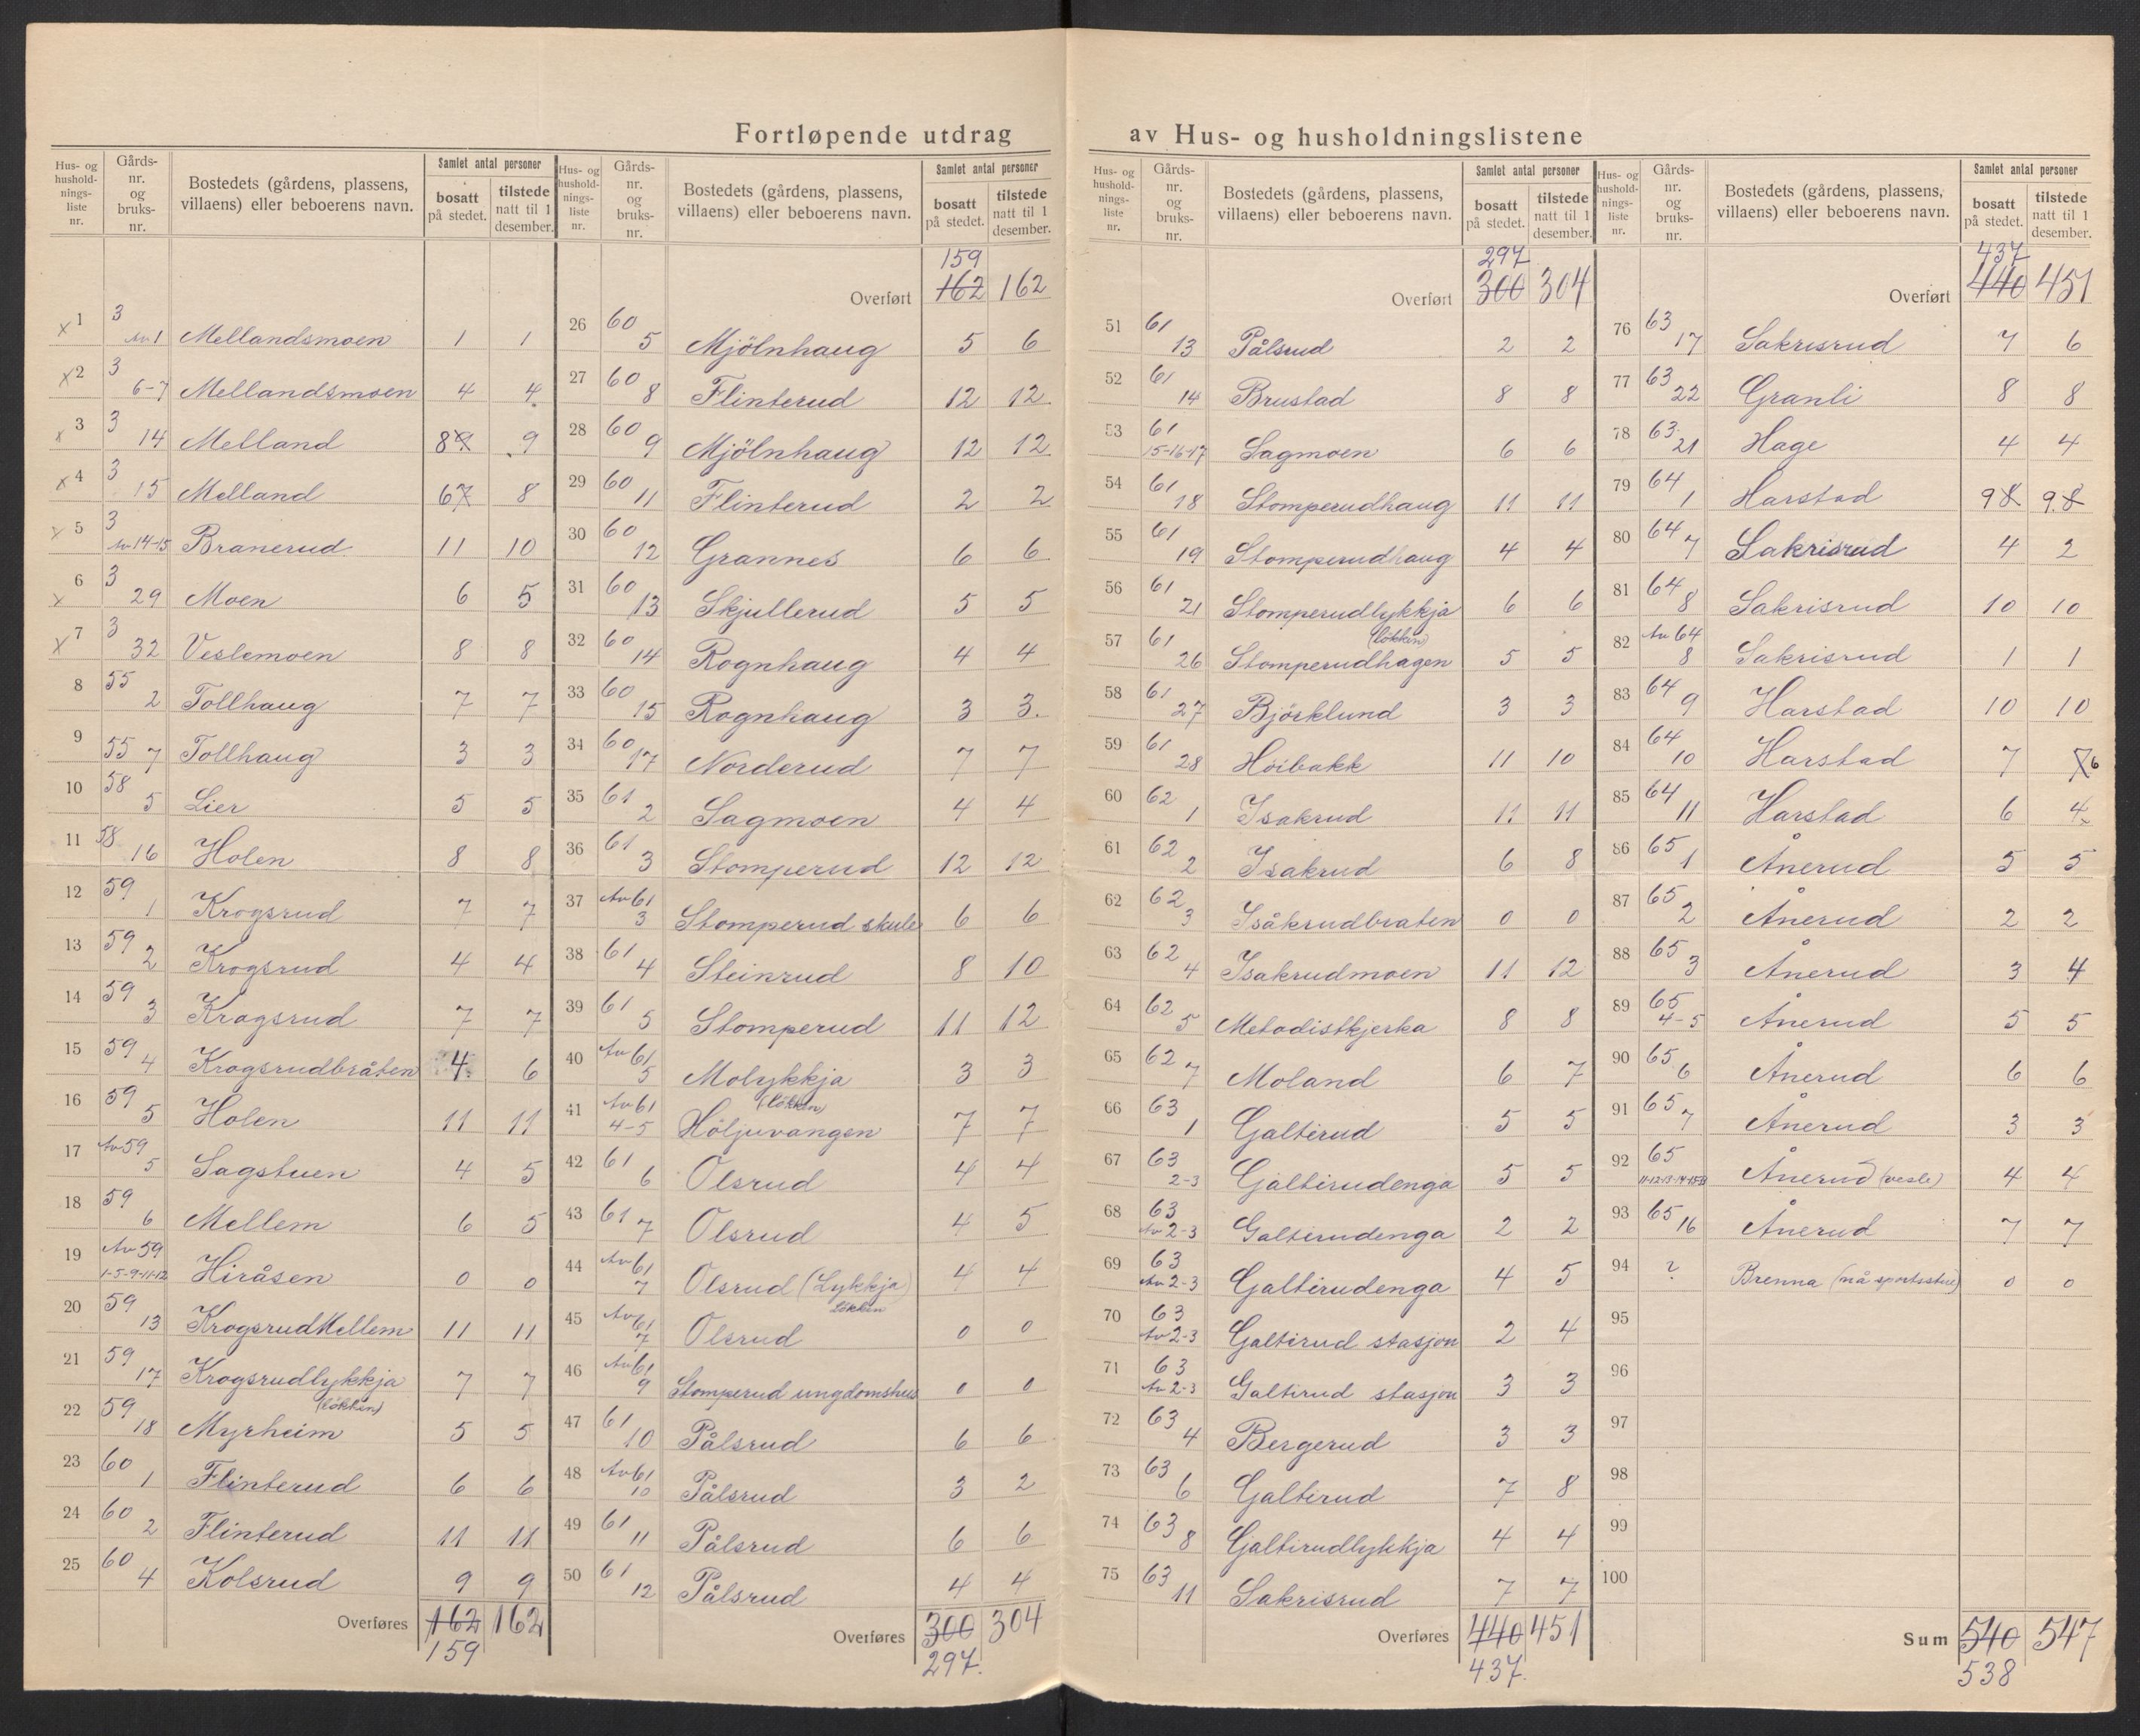 Fortløpende utdrag av Hus- og husholdningslistene
Hus- og husholdningsliste nr. | Gårds- nr. og bruks- nr. | Bostedets (gårdens, plassens, villaens) eller beboerens navn. | Samlet antal personer | bosatt på stedet. | tilstede natt til 1 desember.
x 1 | 3 Av 1 | Mellandsmoen | 1 | 1
x 2 | 3 6-7 | Mellandsmoen | 4 | 4
x 3 | 3 14 | Melland | 8 9 | 9
x 4 | 3 15 | Melland | 6 7 | 8
x 5 | 3 Av 14-15 | Branerud | 11 | 10
x 6 | 3 29 | Moen | 6 | 5
x 7 | 3 32 | Veslemoen | 8 | 8
8 | 55 2 | Tollhaug | 7 | 7
9 | 55 7 | Tollhaug | 3 | 3
10 | 58 5 | Lier | 5 | 5
11 | 58 16 | Holen | 8 | 8
12 | 59 1 | Krogsrud | 7 | 7
13 | 59 2 | Krogsrud | 4 | 4
14 | 59 3 | Krogsrud | 7 | 7
15 | 59 4 | Krogsrudbråten | 4 | 6
16 | 59 5 | Holen | 11 | 11
17 | Av 59 5 | Sagstuen | 4 | 5
18 | 59 6 | Mellem | 6 | 5
19 | Av 59 1-5-9-11-12 | Hiråsen | 0 | 0
20 | 59 13 | Krogsrud Mellem | 11 | 11
21 | 59 17 | Krogsrudlykkja (Løkken) | 7 | 7
22 | 59 18 | Myrheim | 5 | 5
23 | 60 1 | Flinterud | 6 | 6
24 | 60 2 | Flinterud | 11 | 11
25 | 60 4 | Kolsrud | 9 | 9
Overføres | 162 | 162
159
Hus- og husholdningsliste nr. | Gårds- nr. og bruks- nr. | Bostedets (gårdens, plassens, villaens) eller beboerens navn. | Samlet antal personer | bosatt på stedet. | tilstede natt til 1 desember.
159
Overført | 162 | 162
26 | 60 5 | Mjölnhaug | 5 | 6
27 | 60 8 | Flinterud | 12 | 12
28 | 60 9 | Mjölnhaug | 12 | 12
29 | 60 11 | Flinterud | 2 | 2
30 | 60 12 | Grannes | 6 | 6
31 | 60 13 | Skjullerud | 5 | 5
32 | 60 14 | Rognhaug | 4 | 4
33 | 60 15 | Rognhaug | 3 | 3
34 | 60 17 | Norderud | 7 | 7
35 | 61 2 | Sagmoen | 4 | 4
36 | 61 3 | Stomperud | 12 | 12
37 | Av 61 3 | Stomperud skule | 6 | 6
38 | 61 4 | Steinrud | 8 | 10
39 | 61 5 | Stomperud | 11 | 12
40 | Av 61 5 | Molykkja (Løkken) | 3 | 3
41 | Av 61 4-5 | Höljuvangen | 7 | 7
42 | 61 6 | Olsrud | 4 | 4
43 | 61 7 | Olsrud | 4 | 5
44 | Av 61 7 | Olsrud (Lykkja) Løkken | 4 | 4
45 | Av 61 7 | Olsrud | 0 | 0
46 | Av 61 9 | Stomperud ungdomshus | 0 | 0
47 | 61 10 | Pålsrud | 6 | 6
48 | Av 61 10 | Pålsrud | 3 | 2
49 | 61 11 | Pålsrud | 6 | 6
50 | 61 12 | Pålsrud | 4 | 4
Overføres | 300 | 304
297.
Hus- og husholdningsliste nr. | Gårds- nr. og bruks- nr. | Bostedets (gårdens, plassens, villaens) eller beboerens navn. | Samlet antal personer | bosatt på stedet. | tilstede natt til 1 desember.
297
Overført | 300 | 304
51 | 61 13 | Pålsrud | 2 | 2
52 | 61 14 | Brustad | 8 | 8
53 | 61 15-16-17 | Sagmoen | 6 | 6
54 | 61 18 | Stomperudhaug | 11 | 11
55 | 61 19 | Stomperudhaug | 4 | 4
56 | 61 21 | Stomperudlykkja (løkken) | 6 | 6
57 | 61 26 | Stomperudhagen | 5 | 5
58 | 61 27 | Björklund | 3 | 3
59 | 61 28 | Höibakk | 11 | 10
60 | 62 1 | Isakrud | 11 | 11
61 | 62 2 | Isakrud | 6 | 8
62 | 62 3 | Isåkrudbraten | 0 | 0
63 | 62 4 | Isakrudmoen | 11 | 12
64 | 62 5 | Metodistkjerka | 8 | 8
65 | 62 7 | Moland | 6 | 7
66 | 63 1 | Galterud | 5 | 5
67 | 63 2-3 | Galterudenga | 5 | 5
68 | 63 Av 2-3 | Galterudenga | 2 | 2
69 | 63 Av 2-3 | Galterudenga | 4 | 5
70 | 63 Av 2-3 | Galterud stasjon | 2 | 4
71 | 63 Av 2-3 | Galterud stasjon | 3 | 3
72 | 63 4 | Bergerud | 3 | 3
73 | 63 6 | Galterud | 7 | 8
74 | 63 8 | Galterudlykkja | 4 | 4
75 | 63 11 | Sakrisrud | 7 | 7
Overføres | 440 | 451
437.
Hus- og husholdningsliste nr. | Gårds- nr. og bruks- nr. | Bostedets (gårdens, plassens, villaens) eller beboerens navn. | Samlet antal personer | bosatt på stedet. | tilstede natt til 1 desember.
437
Overført | 440 | 451
76 | 63 17 | Sakrisrud | 7 | 6
77 | 63 22 | Granli | 8 | 8
78 | 63 21 | Hage | 4 | 4
79 | 64 1 | Harstad | 9 8 | 9 8
80 | 64 7 | Sakrisrud | 4 | 2
81 | 64 8 | Sakrisrud | 10 | 10
82 | Av 64 8 | Sakrisrud | 1 | 1
83 | 64 9 | Harstad | 10 | 10
84 | 64 10 | Harstad | 7 | 7 6
85 | 64 11 | Harstad | 6 | 4
86 | 65 1 | Ånerud | 5 | 5
87 | 65 2 | Ånerud | 2 | 2
88 | 65 3 | Ånerud | 3 | 4
89 | 65 4-5 | Ånerud | 5 | 5
90 | 65 6 | Ånerud | 6 | 6
91 | 65 7 | Ånerud | 3 | 3
92 | 65 | Ånerud (vesle) | 4 | 4
93 | 65 16 | Ånerud | 7 | 7
94 | ? | Brenna (nå sportsstue) | 0 | 0
95
96
97
98
99
100
Sum | 540 | 547
538